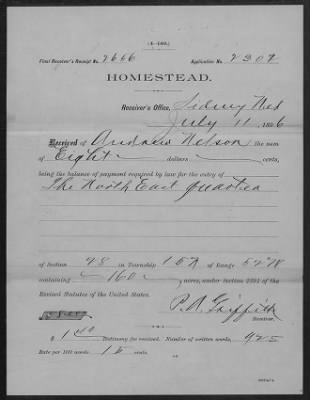 (4—140.)
Final Receiver's Receipt No. 2666 Application No. 2307
HOMESTEAD.
Receiver's Office, Sidney Neb
July 11 1896
Received of Andrew Nelson the sum
of Eight dollars cents,
being the balance of payment required by law for the entry of
The North East quarter
of Section 28 in Township 15N of Range 52W
containing 160 acres, under Section 2291 of the
Revised Statutes of the United States.
P. A. Griffith
Receiver.
$8.00
$1.00 Testimony fee received. Number of written words, 925
Rate per 100 words 15 cents.